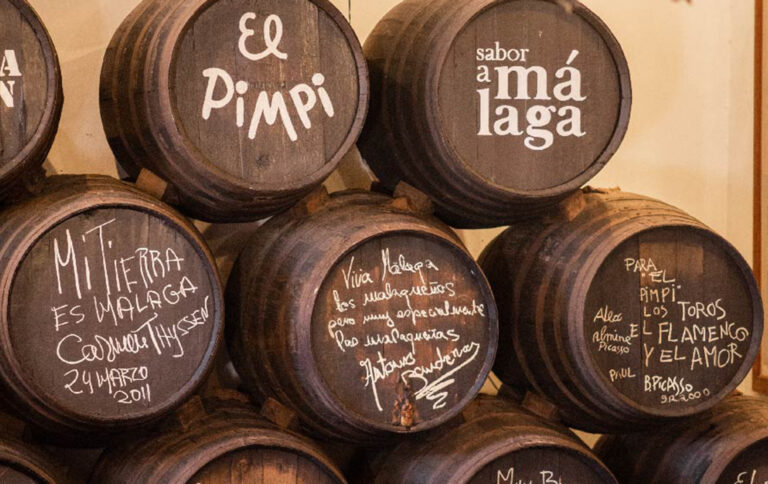 A
N
El
Pimpi
sabor
a má
laga
Mi Tierra
ES MALAGA
Carmen Thyssen
24 MARZO
2011
Viva Málaga
los malagueños
pero muy especialmente
las malagueñas
Antonio Banderas
PARA "EL
PIMPI"
LOS TOROS
EL FLAMENCO
Y EL AMOR
Picasso
PAUL
B. PICASSO